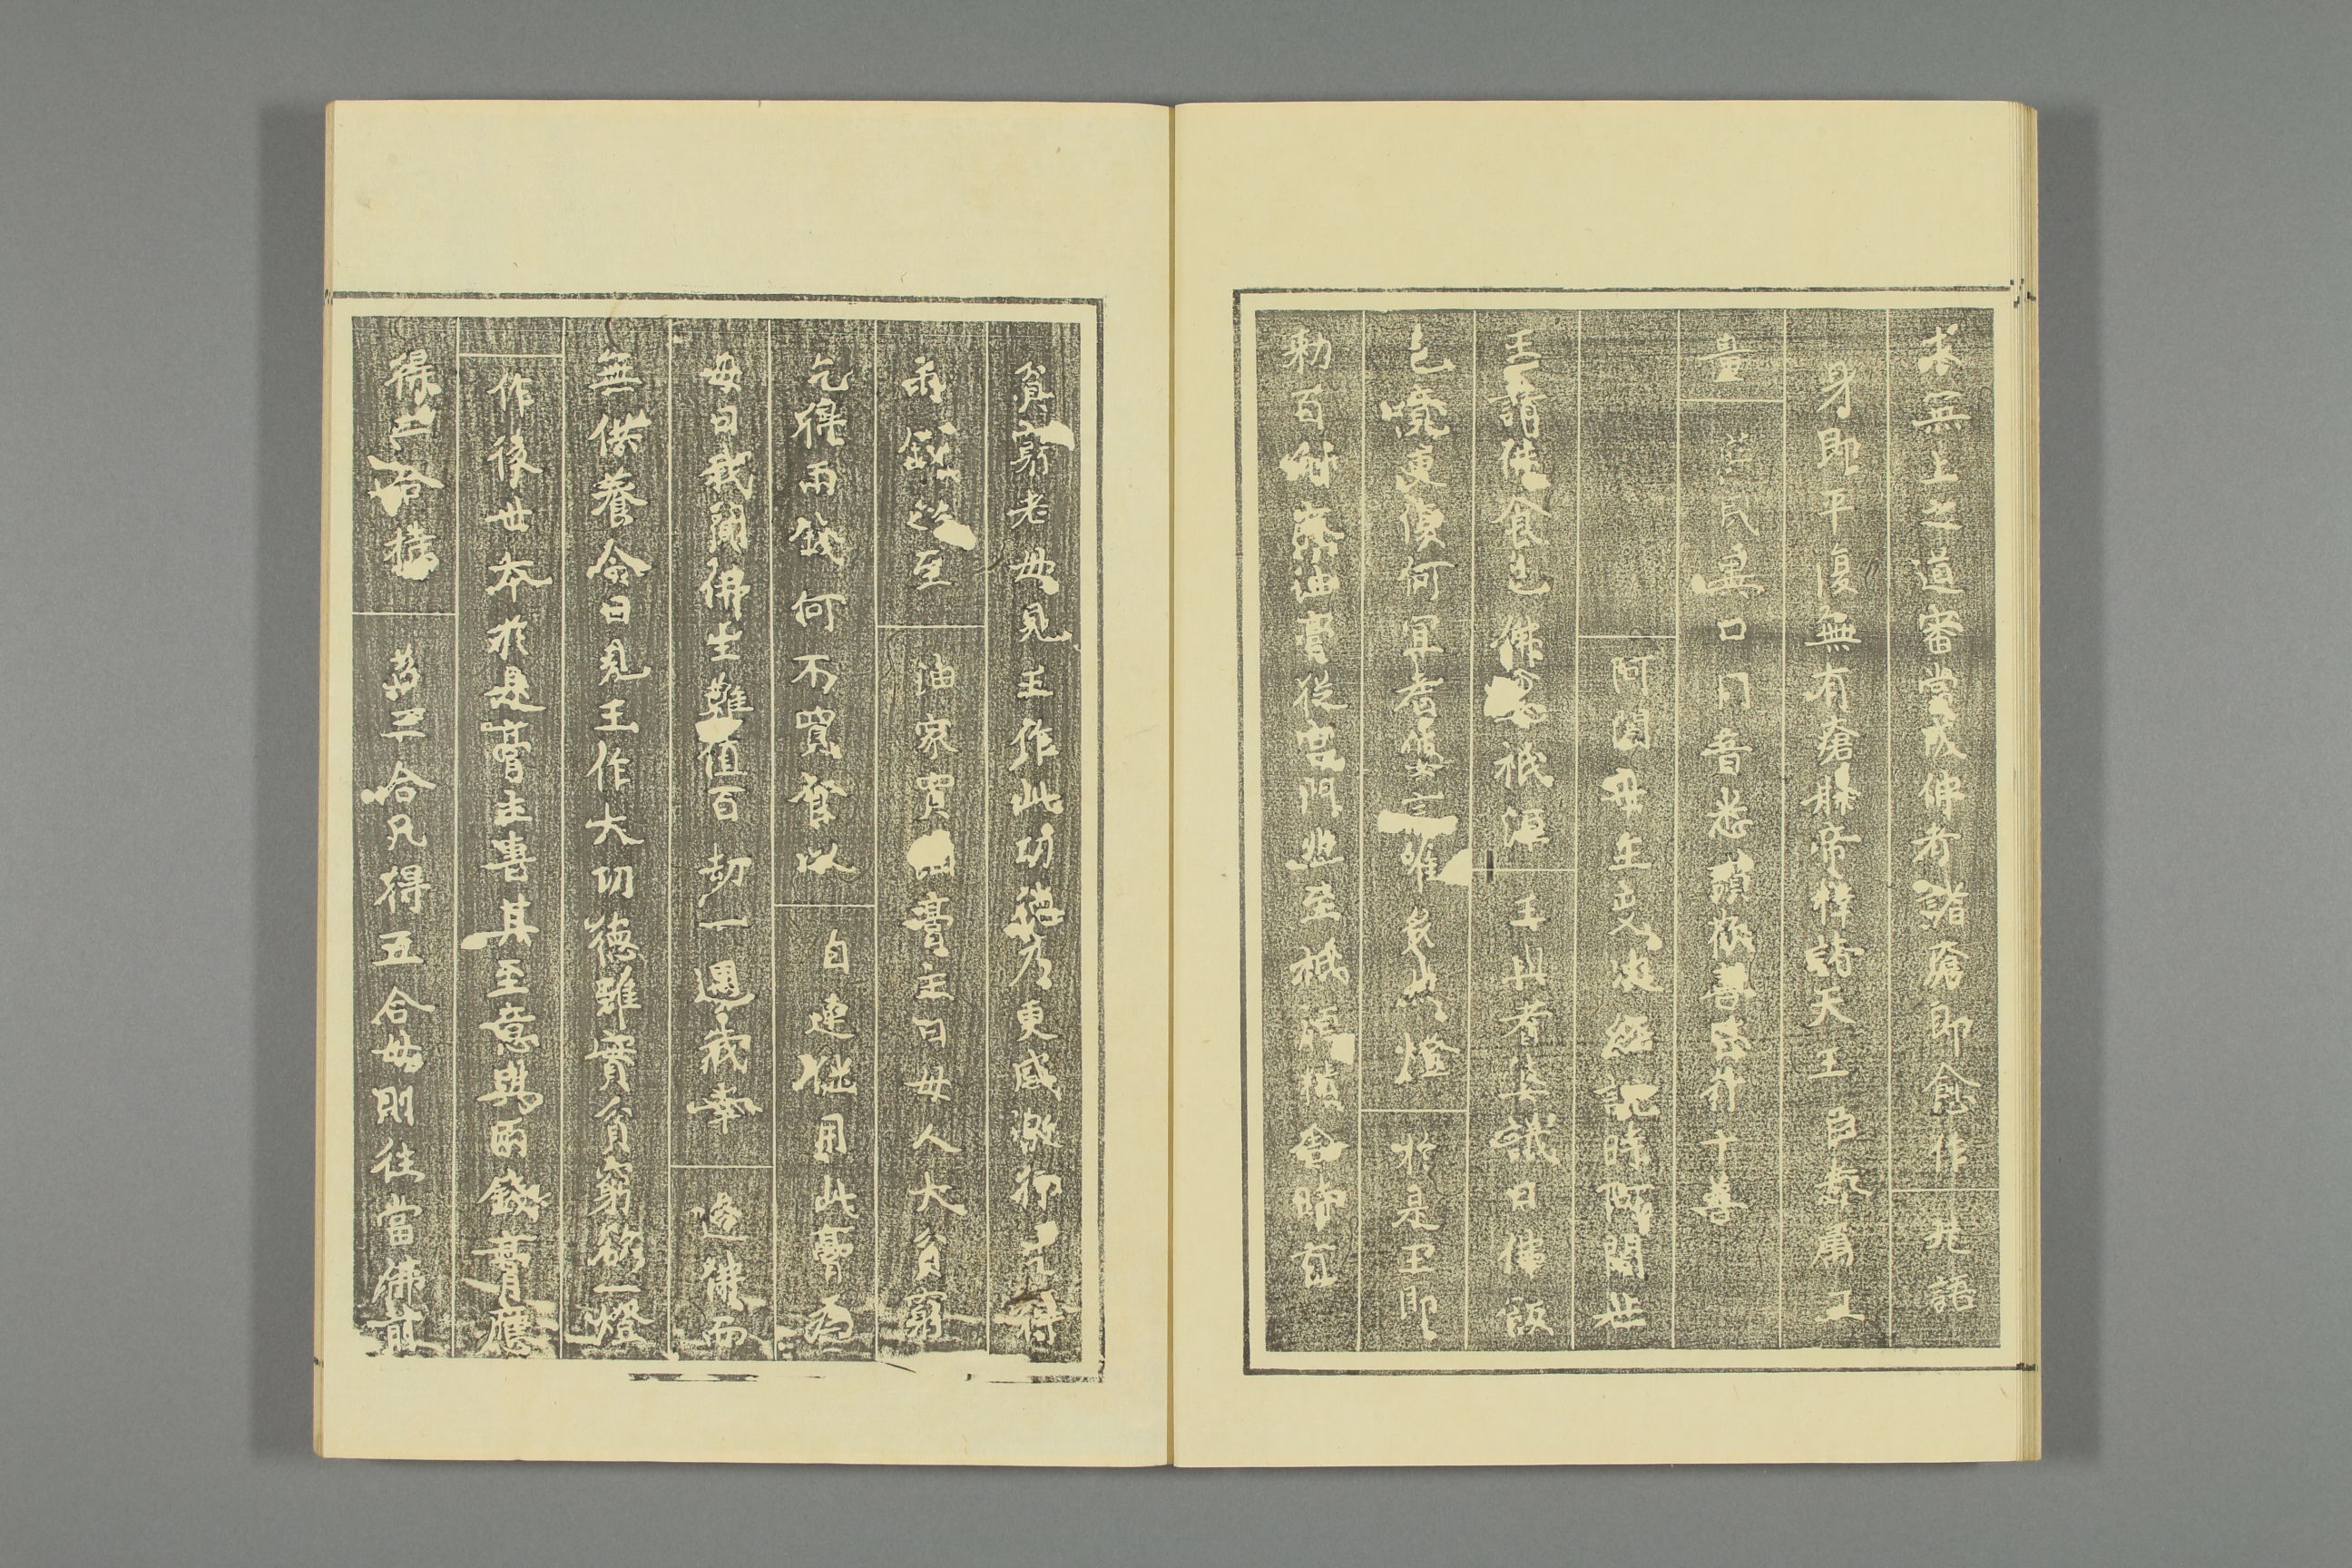 求無上之道審當成佛者諸瘡即愈作是語
身即平復無有瘡𤻀帝釋諸天王臣眷屬
量 莊民異口同音悉讃歎行十善
阿闍世王受決經記時阿闍世
王請佛食已佛還祇洹王與耆婆議曰佛飯
已竟更復何宜耆婆言唯多然燈於是王即
勅百斛麻油膏從宮門至祇洹精舍時有
貧窮老母見王作此功德乃更感激行乞得
兩錢以至油家買膏膏主曰母人大貧窮
乞得兩錢何不買食以自連継用此膏為
母曰我聞佛生難值百劫一遇我幸逢佛而
無供養今日見王作大功德雖實貧窮欲一燈
作後世本於是膏主喜其至意與兩錢膏應
得二合特益三合凡得五合母則往當佛前